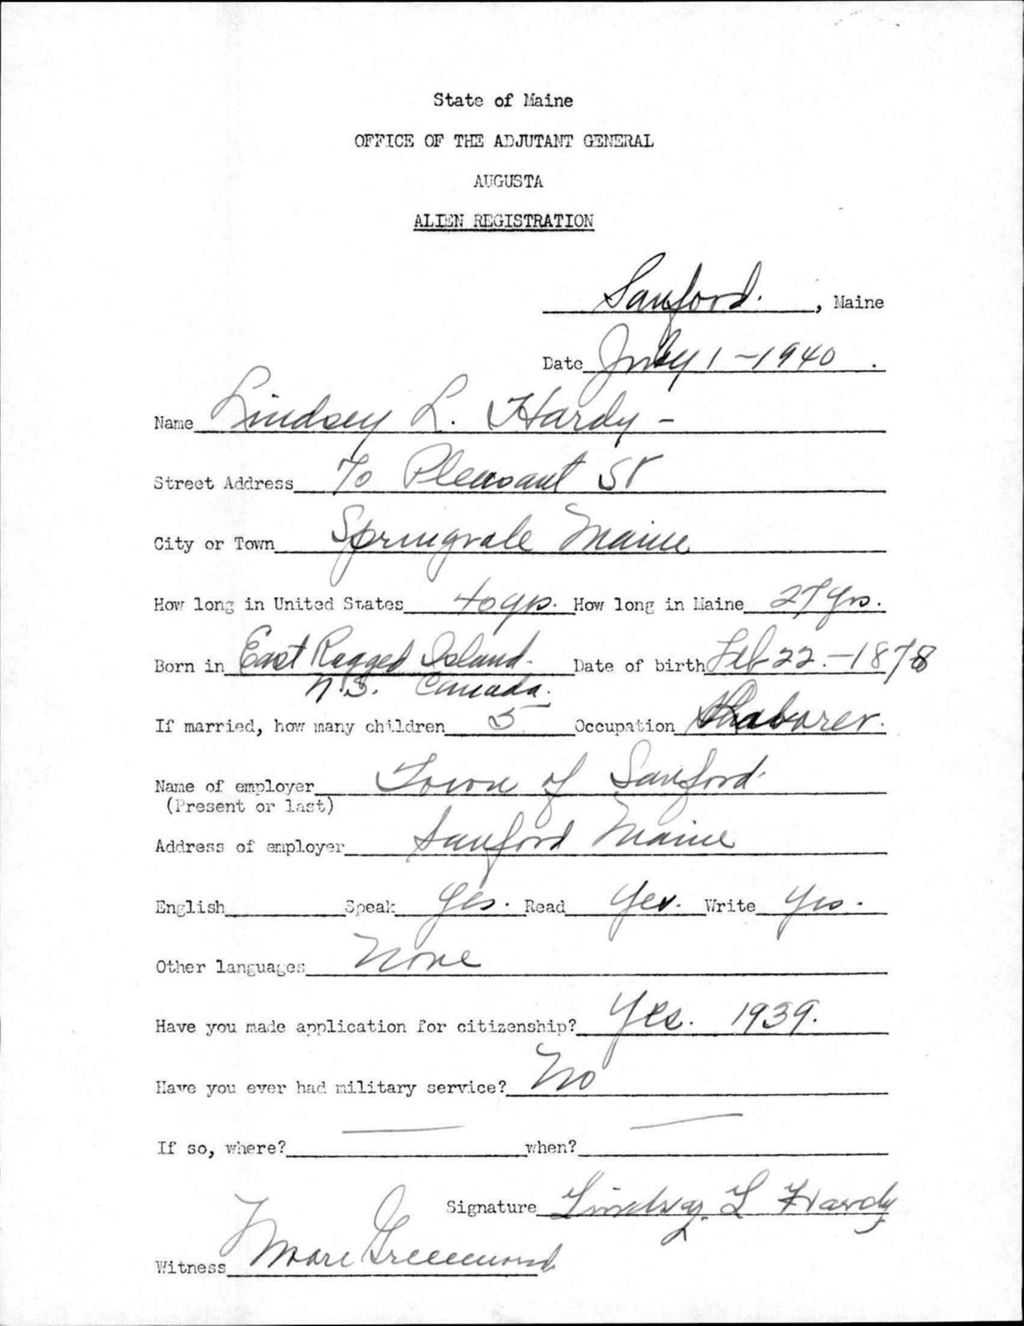 State of Maine
OFFICE OF THE ADJUTANT GENERAL
AUGUSTA
ALIEN REGISTRATION
Sanford. , Maine
Date July 1 - 1940 .
Name Lindsey L. Hardy -
Street Address 70 Pleasant St
City or Town Springvale Maine
How long in United States 40 yrs. How long in Maine 27 yrs.
Born in East Ragged Island. Date of birth Feb 22. - 1878
N.S. Canada.
If married, how many children 5 Occupation Laborer.
Name of employer Town of Sanford.
(Present or last)
Address of employer Sanford Maine
English Speak Yes. Read Yes. Write Yes.
Other languages None
Have you made application for citizenship? Yes. 1939.
Have you ever had military service? No
If so, where? — when? —
Signature Lindsey L Hardy
Witness